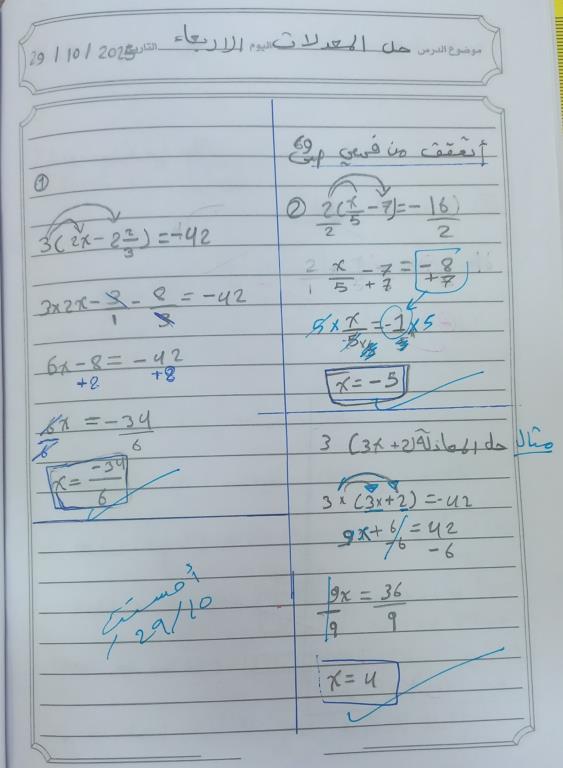 موضوع الدرس حل المعدلات اليوم الاربعاء التاريخ 29 / 10 / 2025
أتحقق من فهمي ص 69
② 2(x/5 - 7) = -16
2 2
x/5 - 7 = -8
+7 +7
5 × x/5 = -1 × 5
x = -5
مثال حل المعادلة 3 (3x + 2)
3 × (3x + 2) = -42
9x + 6 = 42
-6 -6
9x/9 = 36/9
x = 4
①
3(2x - 2 2/3) = -42
3×2x - 3/1 - 8/3 = -42
6x - 8 = -42
+8 +8
6x/6 = -34/6
x = -34/6
أحسنت
29/10